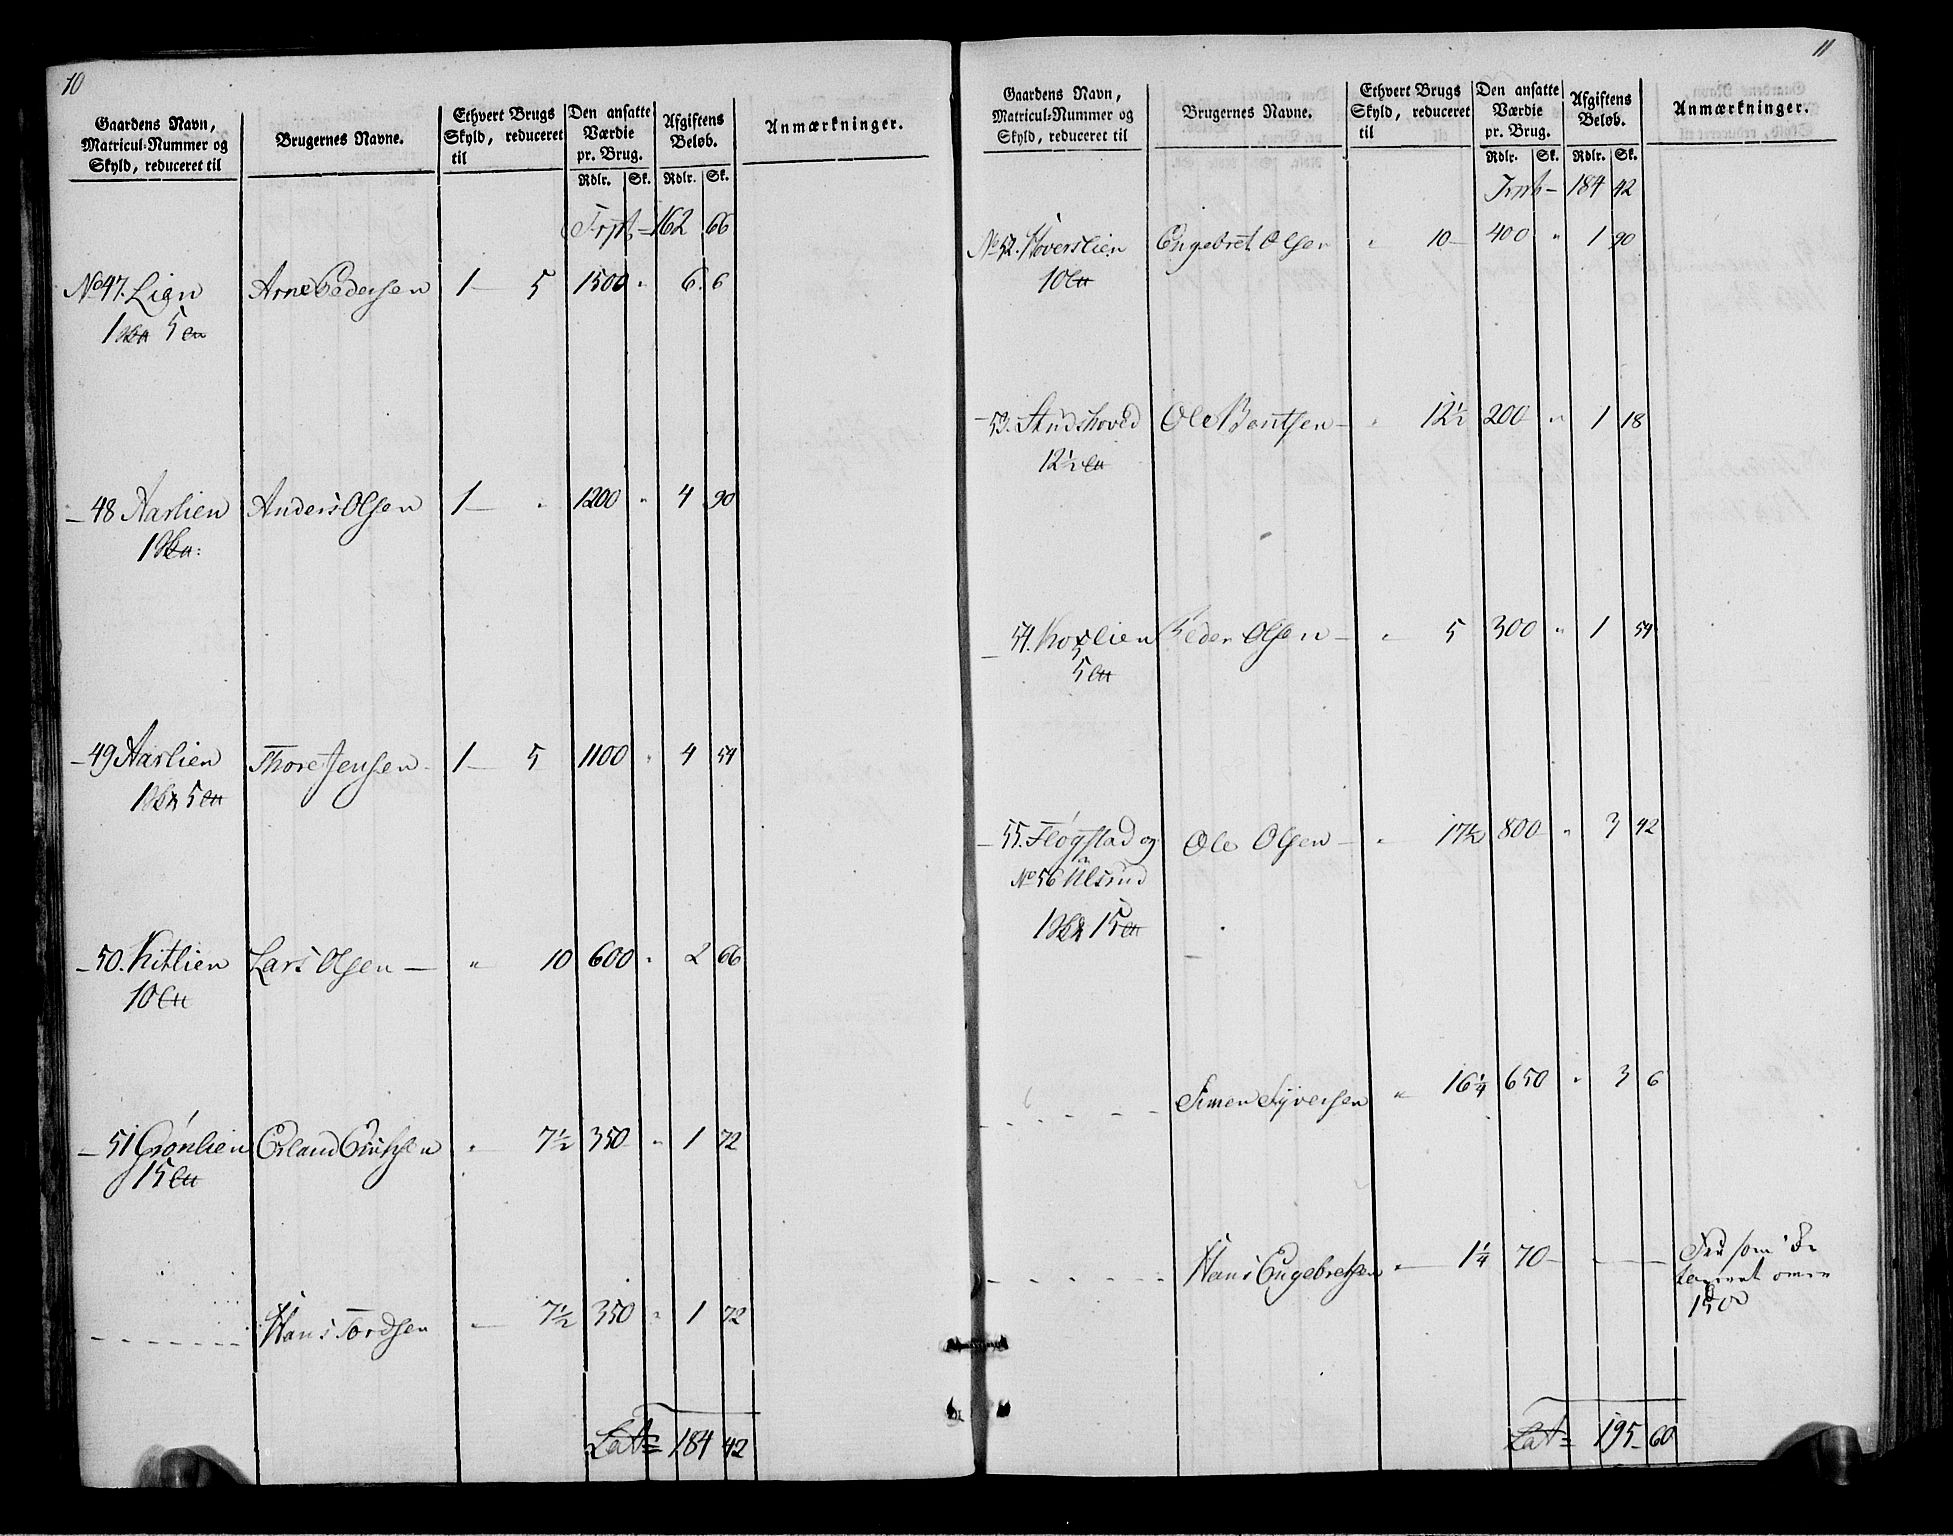 10
Gaardens Navn, Matricul-Nummer og Skyld, reduceret til | Brugernes Navne. | Ethvert Brugs Skyld, reduceret til | Den ansatte Værdie pr. Brug. | Afgiftens Beløb. | Anmærkninger.
Rdlr. Sk. Rdlr. Sk.
162 66
No 47. Lien Arne Pedersen 1 — 5 1500 " 6. 6
1 5
— 48 Aarlien Anders Olsen 1 — " 1200 " 4 90
1
— 49 Aarlien Thore Jensen 1 — 5 1100 " 4 54
1 5
— 50. Kitlien Lars Olsen — " 10 600 " 2 66
10
— 51 Grønlien Erland Erichsen " 7½ 350 " 1 72
15
Hans Tordsen " 7½ 350 " 1 72
Lat= 184 42
11
Gaardens Navn, Matricul-Nummer og Skyld, reduceret til | Brugernes Navne. | Ethvert Brugs Skyld, reduceret til | Den ansatte Værdie pr. Brug. | Afgiftens Beløb. | Anmærkninger.
Rdlr. Sk. Rdlr. Sk.
184 42
No 52. Hoverslien Engebret Olsen " 10 — 400 " 1 90
10
— 53. Ole Bentsen — " 12½ 200 " 1 18
12½
— 54. Peder Olsen — " 5 300 " 1 54
5
— 55. Fløgstad og Ole Olsen — " 17½ 800 " 3 42
No 56 Ulsrud
1 15
Simen Syversen " 16¼ 650 " 3 6
Hans Engebretsen " 1¼ 70 — — som
150
Lat= 195 60